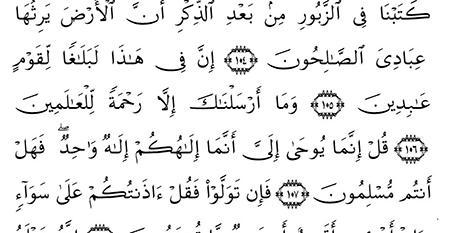 كَتَبْنَا فِى ٱلزَّبُورِ مِنۢ بَعْدِ ٱلذِّكْرِ أَنَّ ٱلْأَرْضَ يَرِثُهَا
عِبَادِىَ ٱلصَّـٰلِحُونَ ﴿١٠٤﴾ إِنَّ فِى هَـٰذَا لَبَلَـٰغًا لِّقَوْمٍ
عَـٰبِدِينَ ﴿١٠٥﴾ وَمَآ أَرْسَلْنَـٰكَ إِلَّا رَحْمَةً لِّلْعَـٰلَمِينَ
﴿١٠٦﴾ قُلْ إِنَّمَا يُوحَىٰٓ إِلَىَّ أَنَّمَآ إِلَـٰهُكُمْ إِلَـٰهٌ وَٰحِدٌ ۖ فَهَلْ
أَنتُم مُّسْلِمُونَ ﴿١٠٧﴾ فَإِن تَوَلَّوْا۟ فَقُلْ ءَاذَنتُكُمْ عَلَىٰ سَوَآءٍ